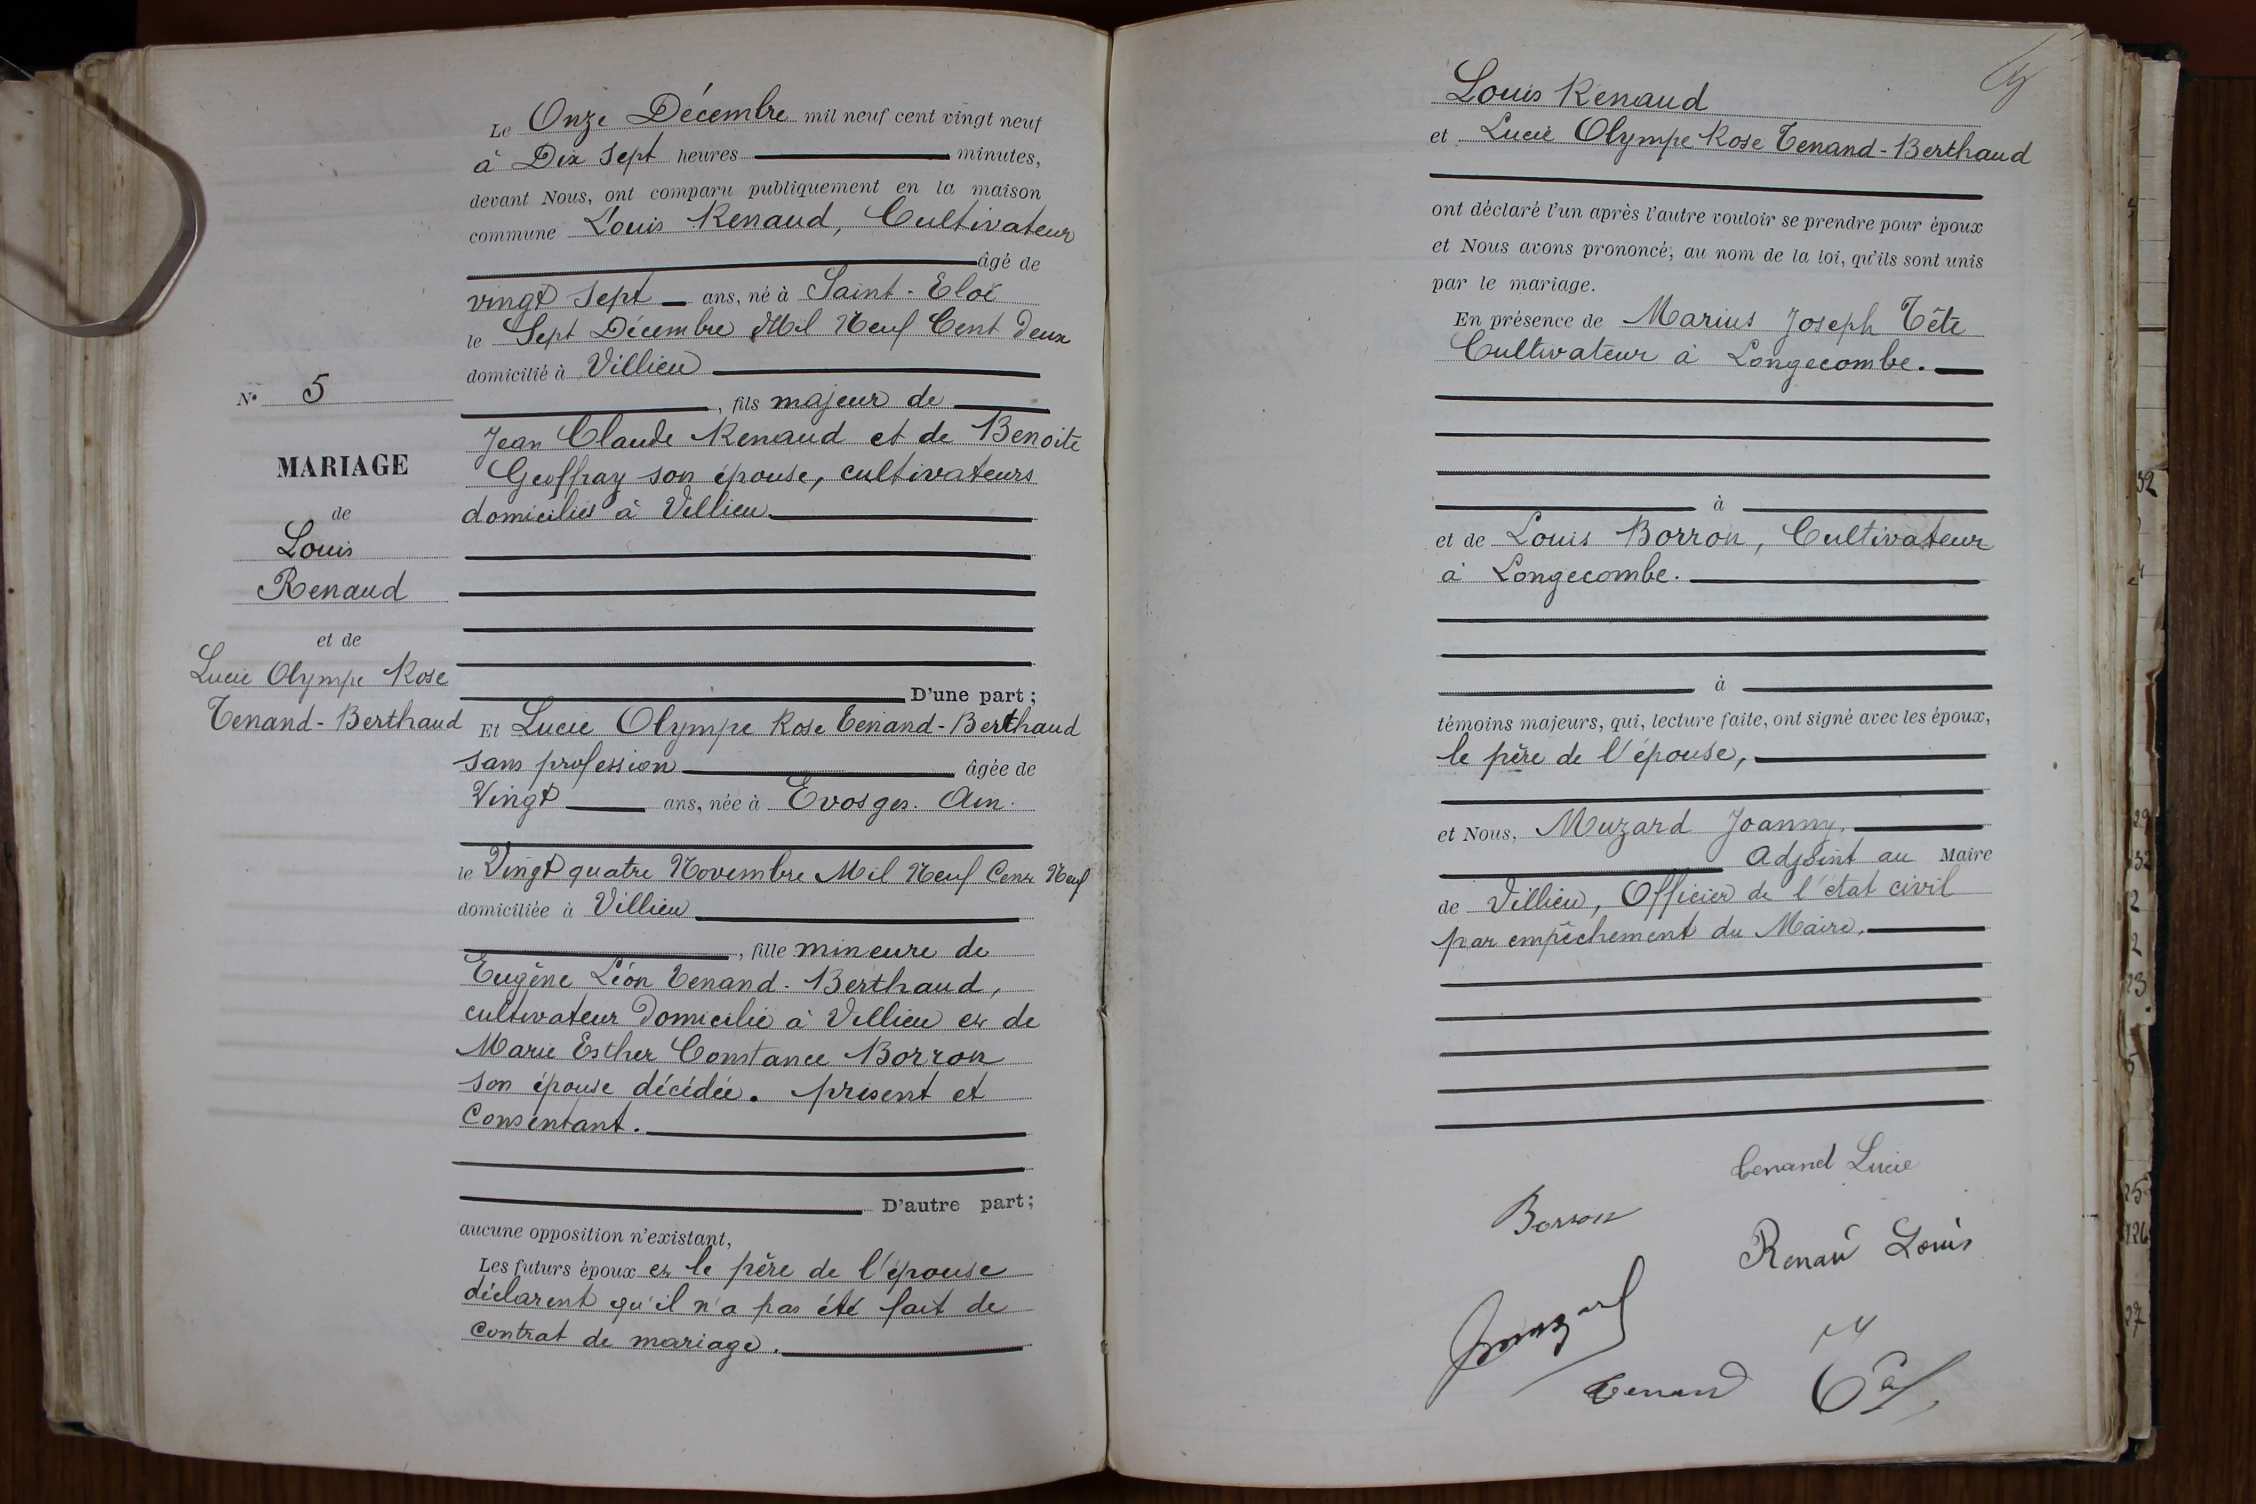 N° 5
MARIAGE
de
Louis
Renaud
et de
Lucie Olympe Rose
Tenand-Berthaud
Le Onze Décembre mil neuf cent vingt neuf
à Dix sept heures minutes,
devant Nous, ont comparu publiquement en la maison
commune Louis Renaud, Cultivateur
âgé de
vingt sept ans, né à Saint-Eloi
le Sept Décembre Mil Neuf Cent Deux
domicilié à Villieu
, fils majeur de
Jean Claude Renaud et de Benoite
Geoffray son épouse, cultivateurs
domiciliés à Villieu
D'une part ;
Et Lucie Olympe Rose Tenand-Berthaud
sans profession âgée de
Vingt ans, née à Evosges. Ain.
le Vingt quatre Novembre Mil Neuf Cent Neuf
domiciliée à Villieu
, fille mineure de
Eugène Léon Tenand-Berthaud,
cultivateur domicilié à Villieu et de
Marie Esther Constance Borron
son épouse décédée. présent et
consentant.
D'autre part ;
aucune opposition n'existant,
Les futurs époux et le père de l'épouse
déclarent qu'il n'a pas été fait de
contrat de mariage.
Louis Renaud
et Lucie Olympe Rose Tenand-Berthaud
ont déclaré l'un après l'autre vouloir se prendre pour époux
et Nous avons prononcé, au nom de la loi, qu'ils sont unis
par le mariage.
En présence de Marius Joseph Tête
Cultivateur à Longecombe.
à
et de Louis Borron, Cultivateur
à Longecombe.
à
témoins majeurs, qui, lecture faite, ont signé avec les époux,
le père de l'épouse,
et Nous, Muzard Joanny.
Adjoint au Maire
de Villieu, Officier de l'état civil
par empêchement du Maire.
Tenand Lucie
Borron
Renaud Louis
Muzard
Tenand